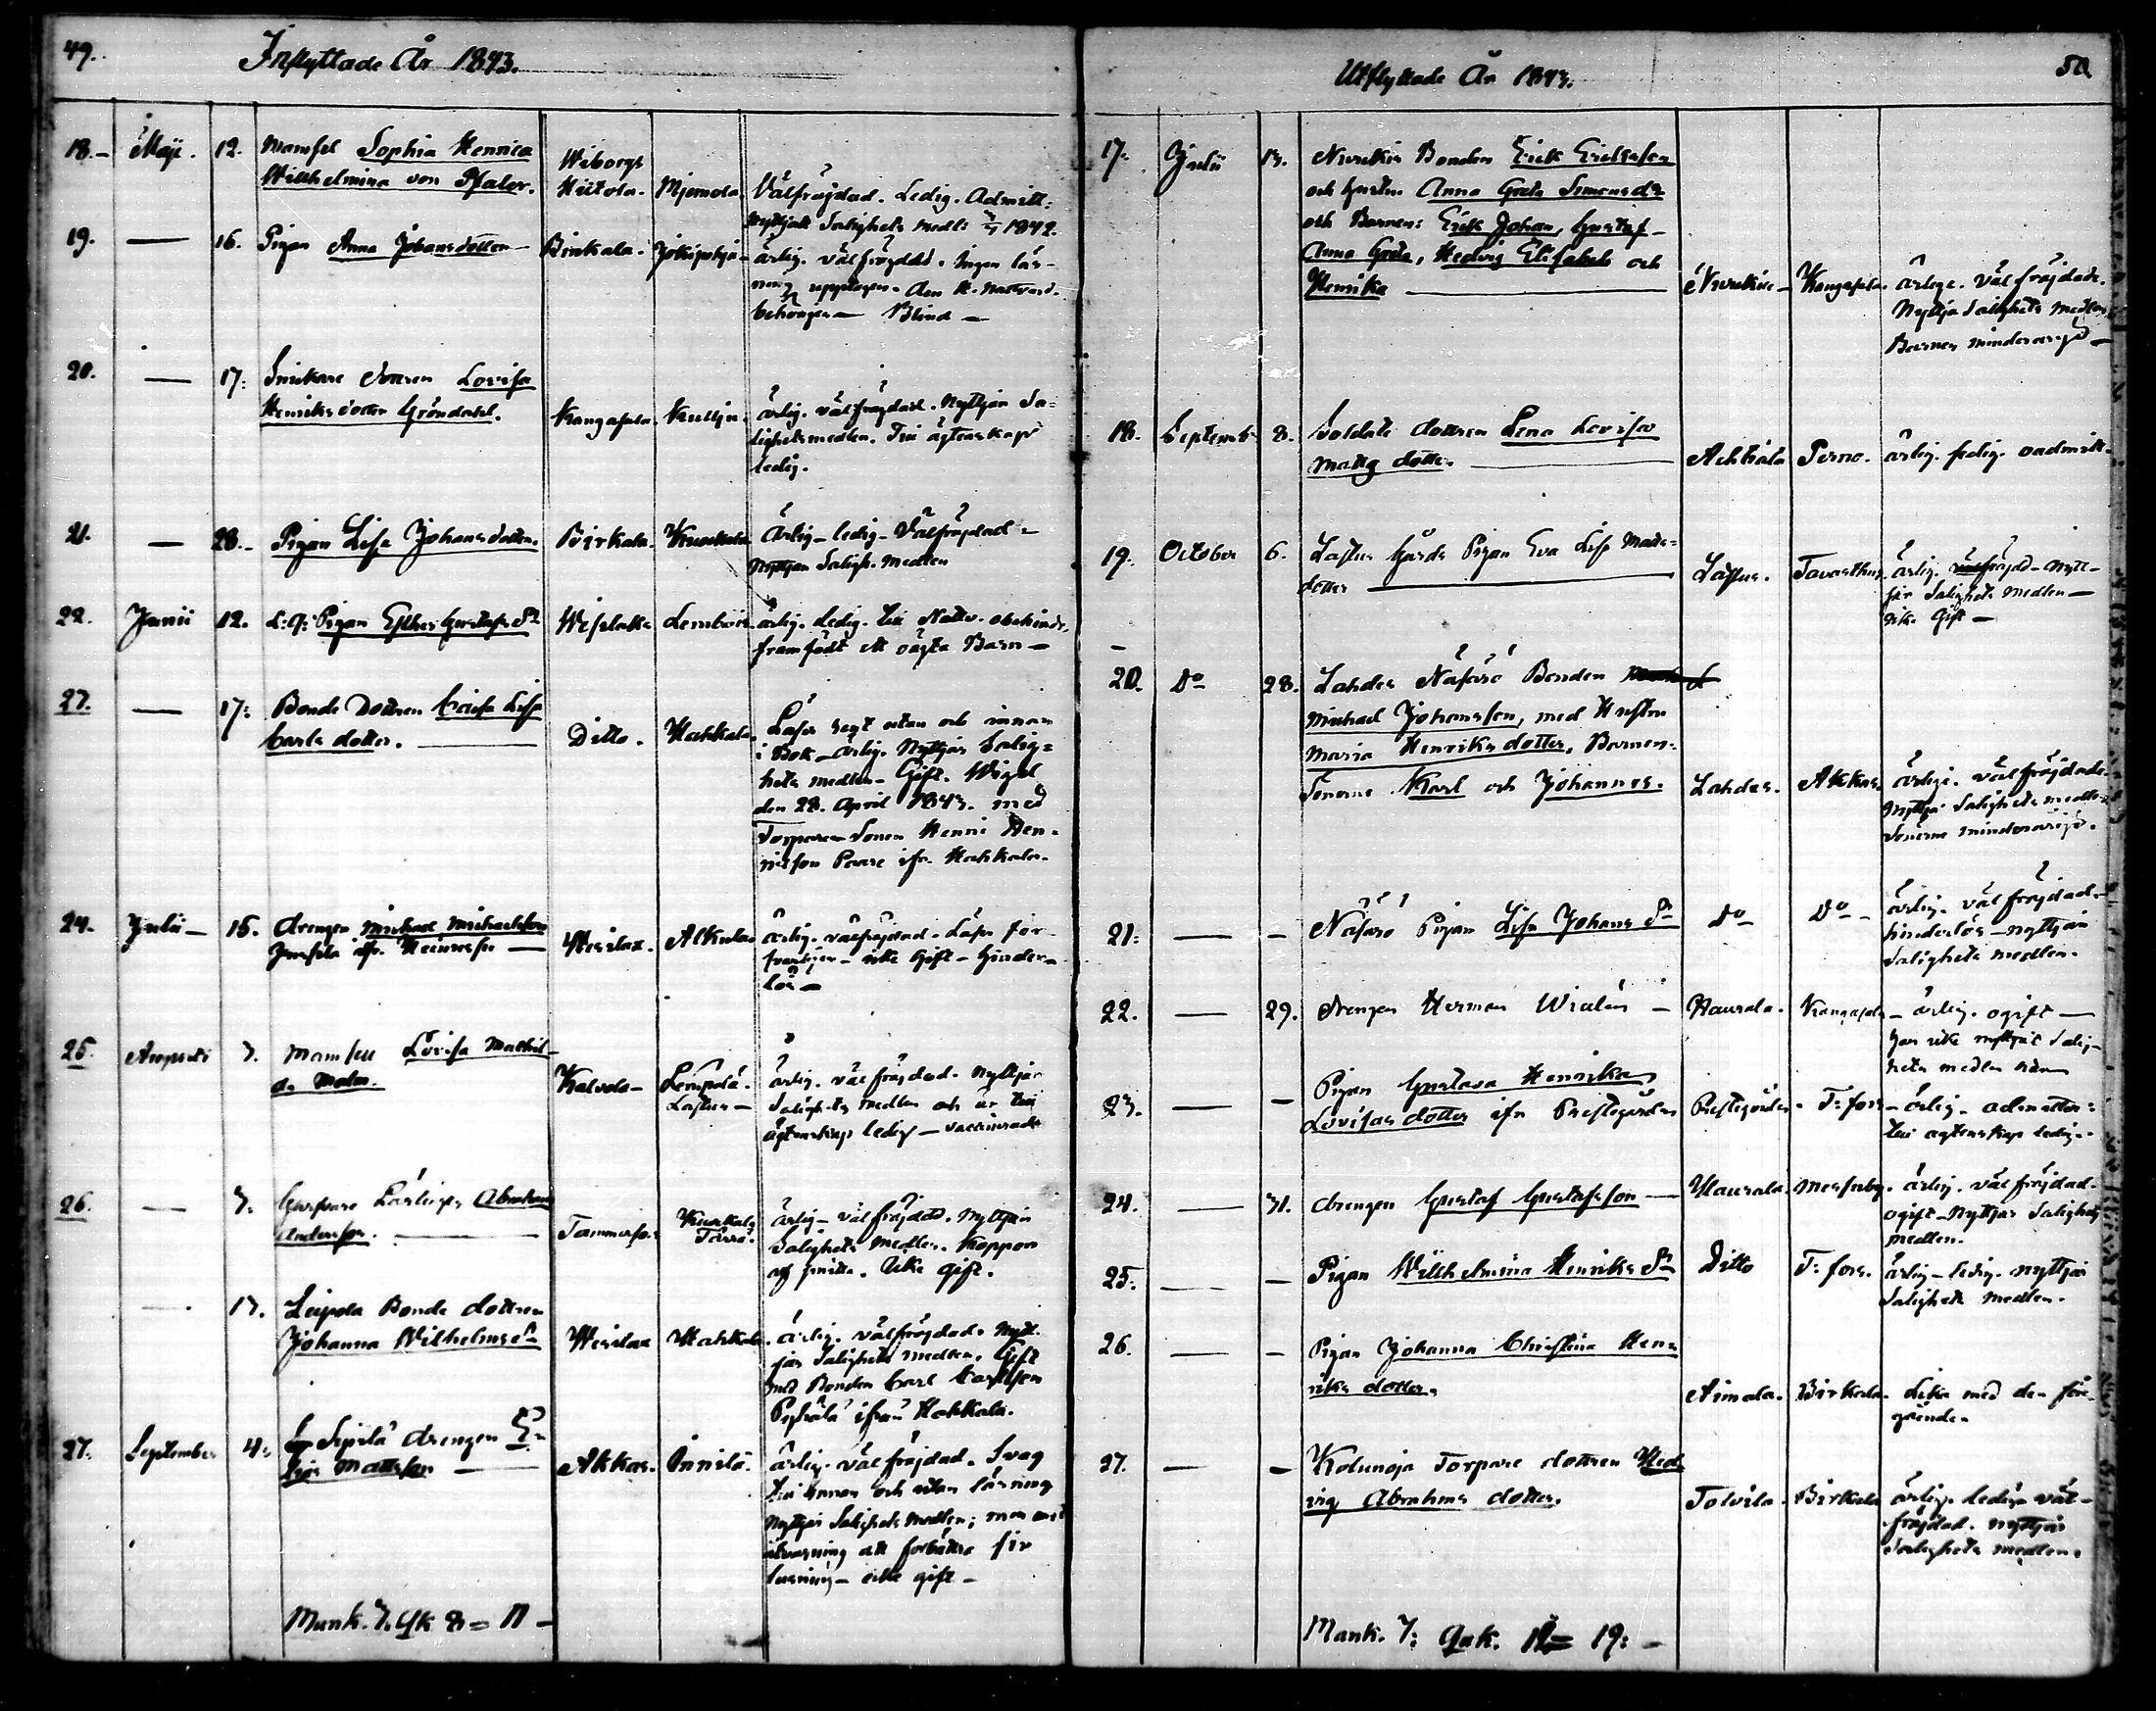 49.
Inflyttade År 1843.
18. Maji. 12. Mamsel Sophia Henrica
Willhelmina von Pfaler.
Wiborgs
Hiitola. Mjemola
Välfräjdad. Ledig. Admitt:
Nyttjat Salighets medl: 1842.
19. — 16. Pigan Anna Johansdotter
Birkala. Jokipohja
ärlig. välfräjdad. Ingen läs-
ning upptagen. Den H. Nattvard.
behörigen — Blind —
20. — 17. dottren Lovisa
Henriksdotter Gröndahl.
Kangasala. Kullja.
ärlig. välfräjdad. Nyttjar Sa-
lighetsmedlen. Till ägtenskap
ledig.
21. — 28. Pigan Lisa Johansdotter.
Birkala. Kuokkala
Ärlig - ledig - Välfräjdad -
Nyttjar Saligh. Medlen
22. Junii 12. L:q: Pigan Esther Gustafs Dr
Wesilaks Lembois
ärlig. ledig. till Nattv. obehindr.
framfödt ett oägta Barn —
23. — 17: Bonde Dottren Caisa Lisa
Carls dotter. —
Ditto. Hahkala.
Läser utan och innan
i Bok - ärlig. Nyttjar Salig-
hets medlen - Gift. Wigd
den 28. April 1843. med
Torpare Sonen Henric Hen-
ricsson ifr. Hahkala.
24. Julii — 15. drengen Michael Michaelsson
ifr. —
Wesilax. Alkula
ärlig. välfräjdad. Läser för-
svarligen - icke Gift - hinder-
lös —
25. Augusti 3. Mamsell Lovisa Mathil-
da Malm.
Kalvola — Lempoila.
Lastus —
ärlig. välfräjdad. Nyttjar
Salighets medlen och är till
ägtenskap ledig — vaccinerad
26. — 3. Lärlingen Abraham
Andersson. —
Tammerfors Kuokkala
ärlig - välfräjdad. Nyttjar
Salighets medlen. Koppor
af smitta. Icke gift.
— 13. Leipola Bonde dottren
Johanna Wilhelms Dr
Wesilax Hahkala.
ärlig. välfräjdad. Nytt-
jar Salighets medlen, Gift
med Bonden Carl Carlsson
ifrån Hahkala.
27. September 4: Sipilä drengen E-
lias Mattsson —
Akkas. Innilä.
ärlig. välfräjdad. Svag
till innan och utan läsning
Nyttjar Salighets Medlen; men med
åtvarning att förbättra sin
läsning - icke gift -
Mank. 3. Qk 8 = 11 —
50
Utflyttade År 1843.
17. Julii 13. Nurckis Bonden Erik Eriksson
och hustru Anna Greta Simons dr
och Barnen: Erik Johan, Gustaf -
Anna Greta, Hedvig Elisabeth och
Henrika —
Nurckis — Kangasala.
ärlige. välfräjdade.
Nyttja Salighets medlen
Barnen minderårige —
18. Septemb. 8. Soldats dottren Lena Lovisa
Matts dotter. —
Ahtiala Perno. ärlig. ledig. oadmitt.
19. October 6. Lastus Gårds Pigan Eva Lisa Mats-
dotter —
Lastus. Tavasthus.
ärlig. Nytt-
jar Salighets medlen —
icke Gift —
20. Do 28. Lahdes Bonden
Michael Johansson, med Hustru
Maria Henriks dotter, Barnen
Sönerne Karl och Johannes.
Lahdes. Akkas.
ärlige. välfräjdade.
Nyttja Salighets medlen
Sönerne minderårige.
21. — — Pigan Lisa Johans Dr
Do Do —
ärlig. välfräjdad —
hinderlös - nyttjar
Salighets medlen.
22. — 29. drengen Herman Widlén —
Haurala. Kangasala — ärlig. ogift —
har icke nyttjat Salig-
hets medlen här
23. — — Pigan Gustava Henrika
Lovisas dotter ifr Prestegården
Prestgården. T:fors — ärlig - admitter:
till ägtenskap ledig.
24. — 31. drengen Gustaf Gustafsson —
Haurala. ärlig. välfräjdad.
ogift - Nyttjar Salighets
medlen.
25. — — Pigan Willhelmina Henriks Dr
Ditto T:fors. ärlig - ledig. nyttjar
Salighets medlen.
26. — — Pigan Johanna Christina Hen-
riks dotter.
Aimala. Birkala. Lika med den före-
gående.
27. — — Kolunoja Torpare dottren Hed-
vig Abrahams dotter.
Tolvila. Birkala ärlig. ledig. väl-
fräjdad. nyttjar
Salighets medlen.
Mank. 7: Qnk. 12 = 19: —